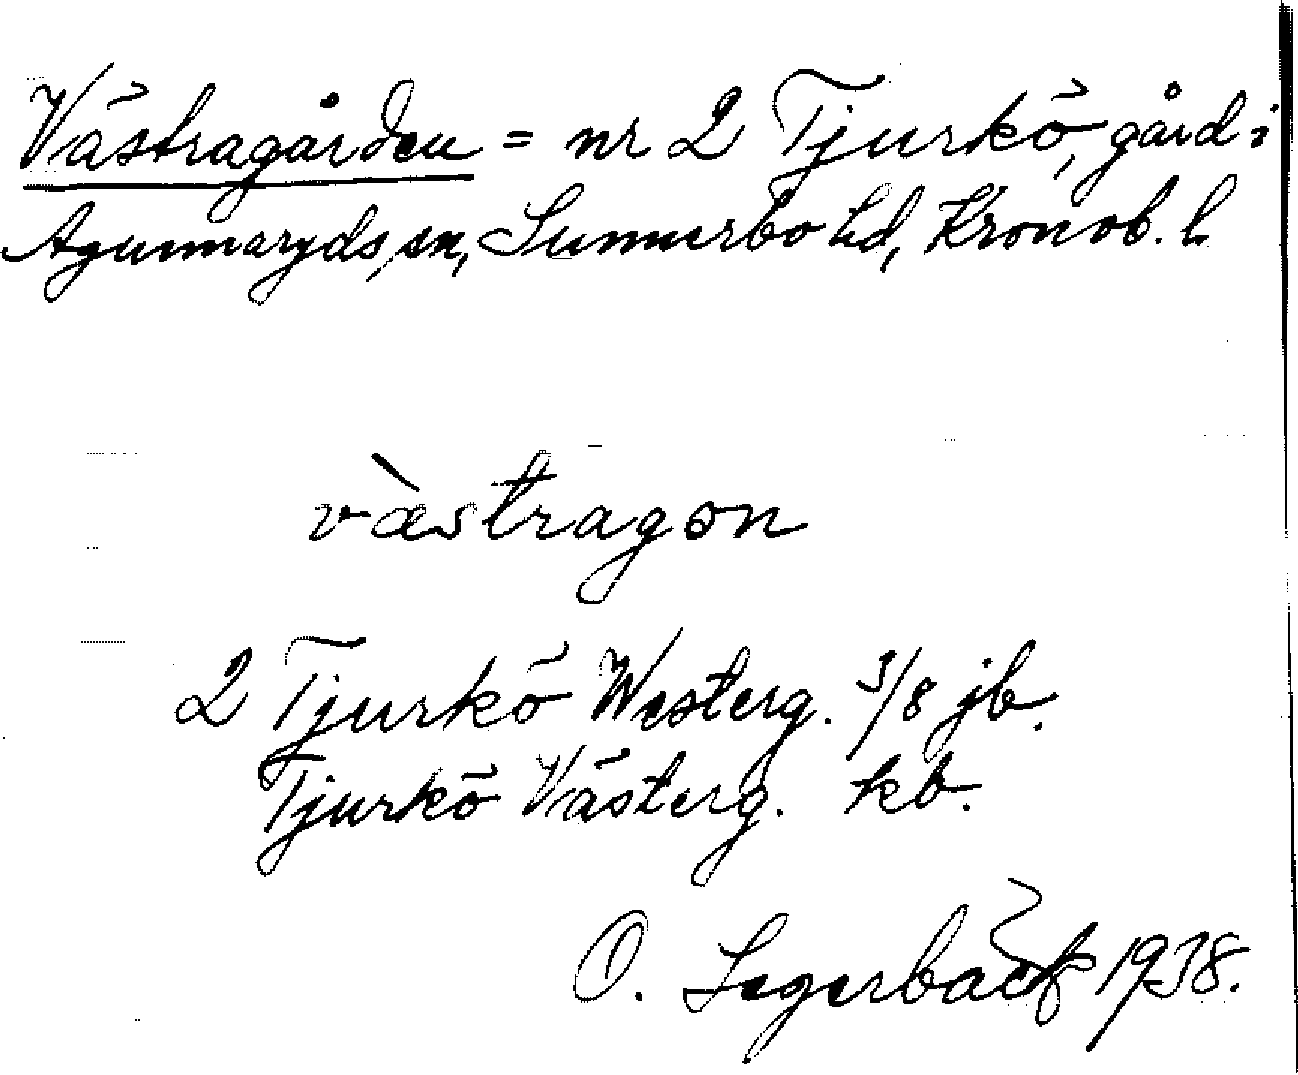 Västragården = nr 2 Tjurkö, gård i
Agunnaryds sn, Sunnerbo hd, Kronob. l.
v̀æstragon
2 Tjurkö Westerg. 3/8 jb.
Tjurkö Västerg. kb.
O. Segerbäck 1938.